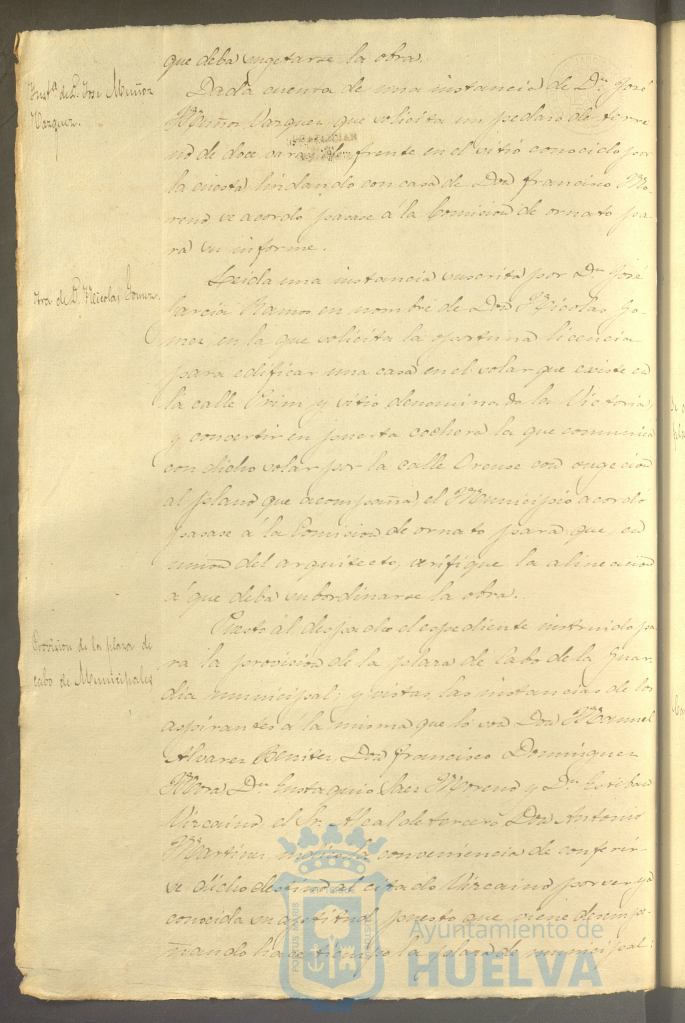 que deba sugetarse la obra.
Inst.ª de D. José Muñoz
Vazquez.
Dada cuenta de una instancia de D.n José
Muñoz Vazquez que solicita un pedazo de terre
no de doce varas de frente en el sitio conocido por
la cuesta lindando con casa de Don Francisco Mo-
reno se acordó pasase á la Comision de ornato pa-
ra su informe.
Otra de D. Nicolas Gomez.
Leida una instancia suscrita por D.n José
Garcia Ramos en nombre de Don Nicolas Go-
mez en la que solicita la oportuna licencia
para edificar una casa en el solar que existe en
la calle Prim y sitio denominado la Victoria,
y convertir en puerta cochera la que comunica
con dicho solar por la calle Orense con sugecion
al plano que acompaña, el Municipio acordó
pasase á la Comision de ornato para que, en
union del arquitecto, verifique la alineacion
á que deba subordinarse la obra.
Provision de la plaza de
cabo de Municipales
Puesto al despacho el espediente instruido pa
ra la provision de la plaza de Cabo de la Guar-
dia municipal; y vistas las instancias de los
aspirantes á la misma que lo son Don Manuel
Alvarez Benitez, Don Francisco Dominguez
Mora D.n Eustaquio Saez Moreno y D.n Esteban
Vizcaino, el Sr. Alcalde tercero Don Antonio
Martinez, la conveniencia de conferir-
se dicho destino al citado Vizcaino por ser ya
conocida su aptitud puesto que viene desempe-
ñando hace tiempo la plaza de municipal:
PORTUS MARIS
CUSTODIA
Ayuntamiento de
HUELVA